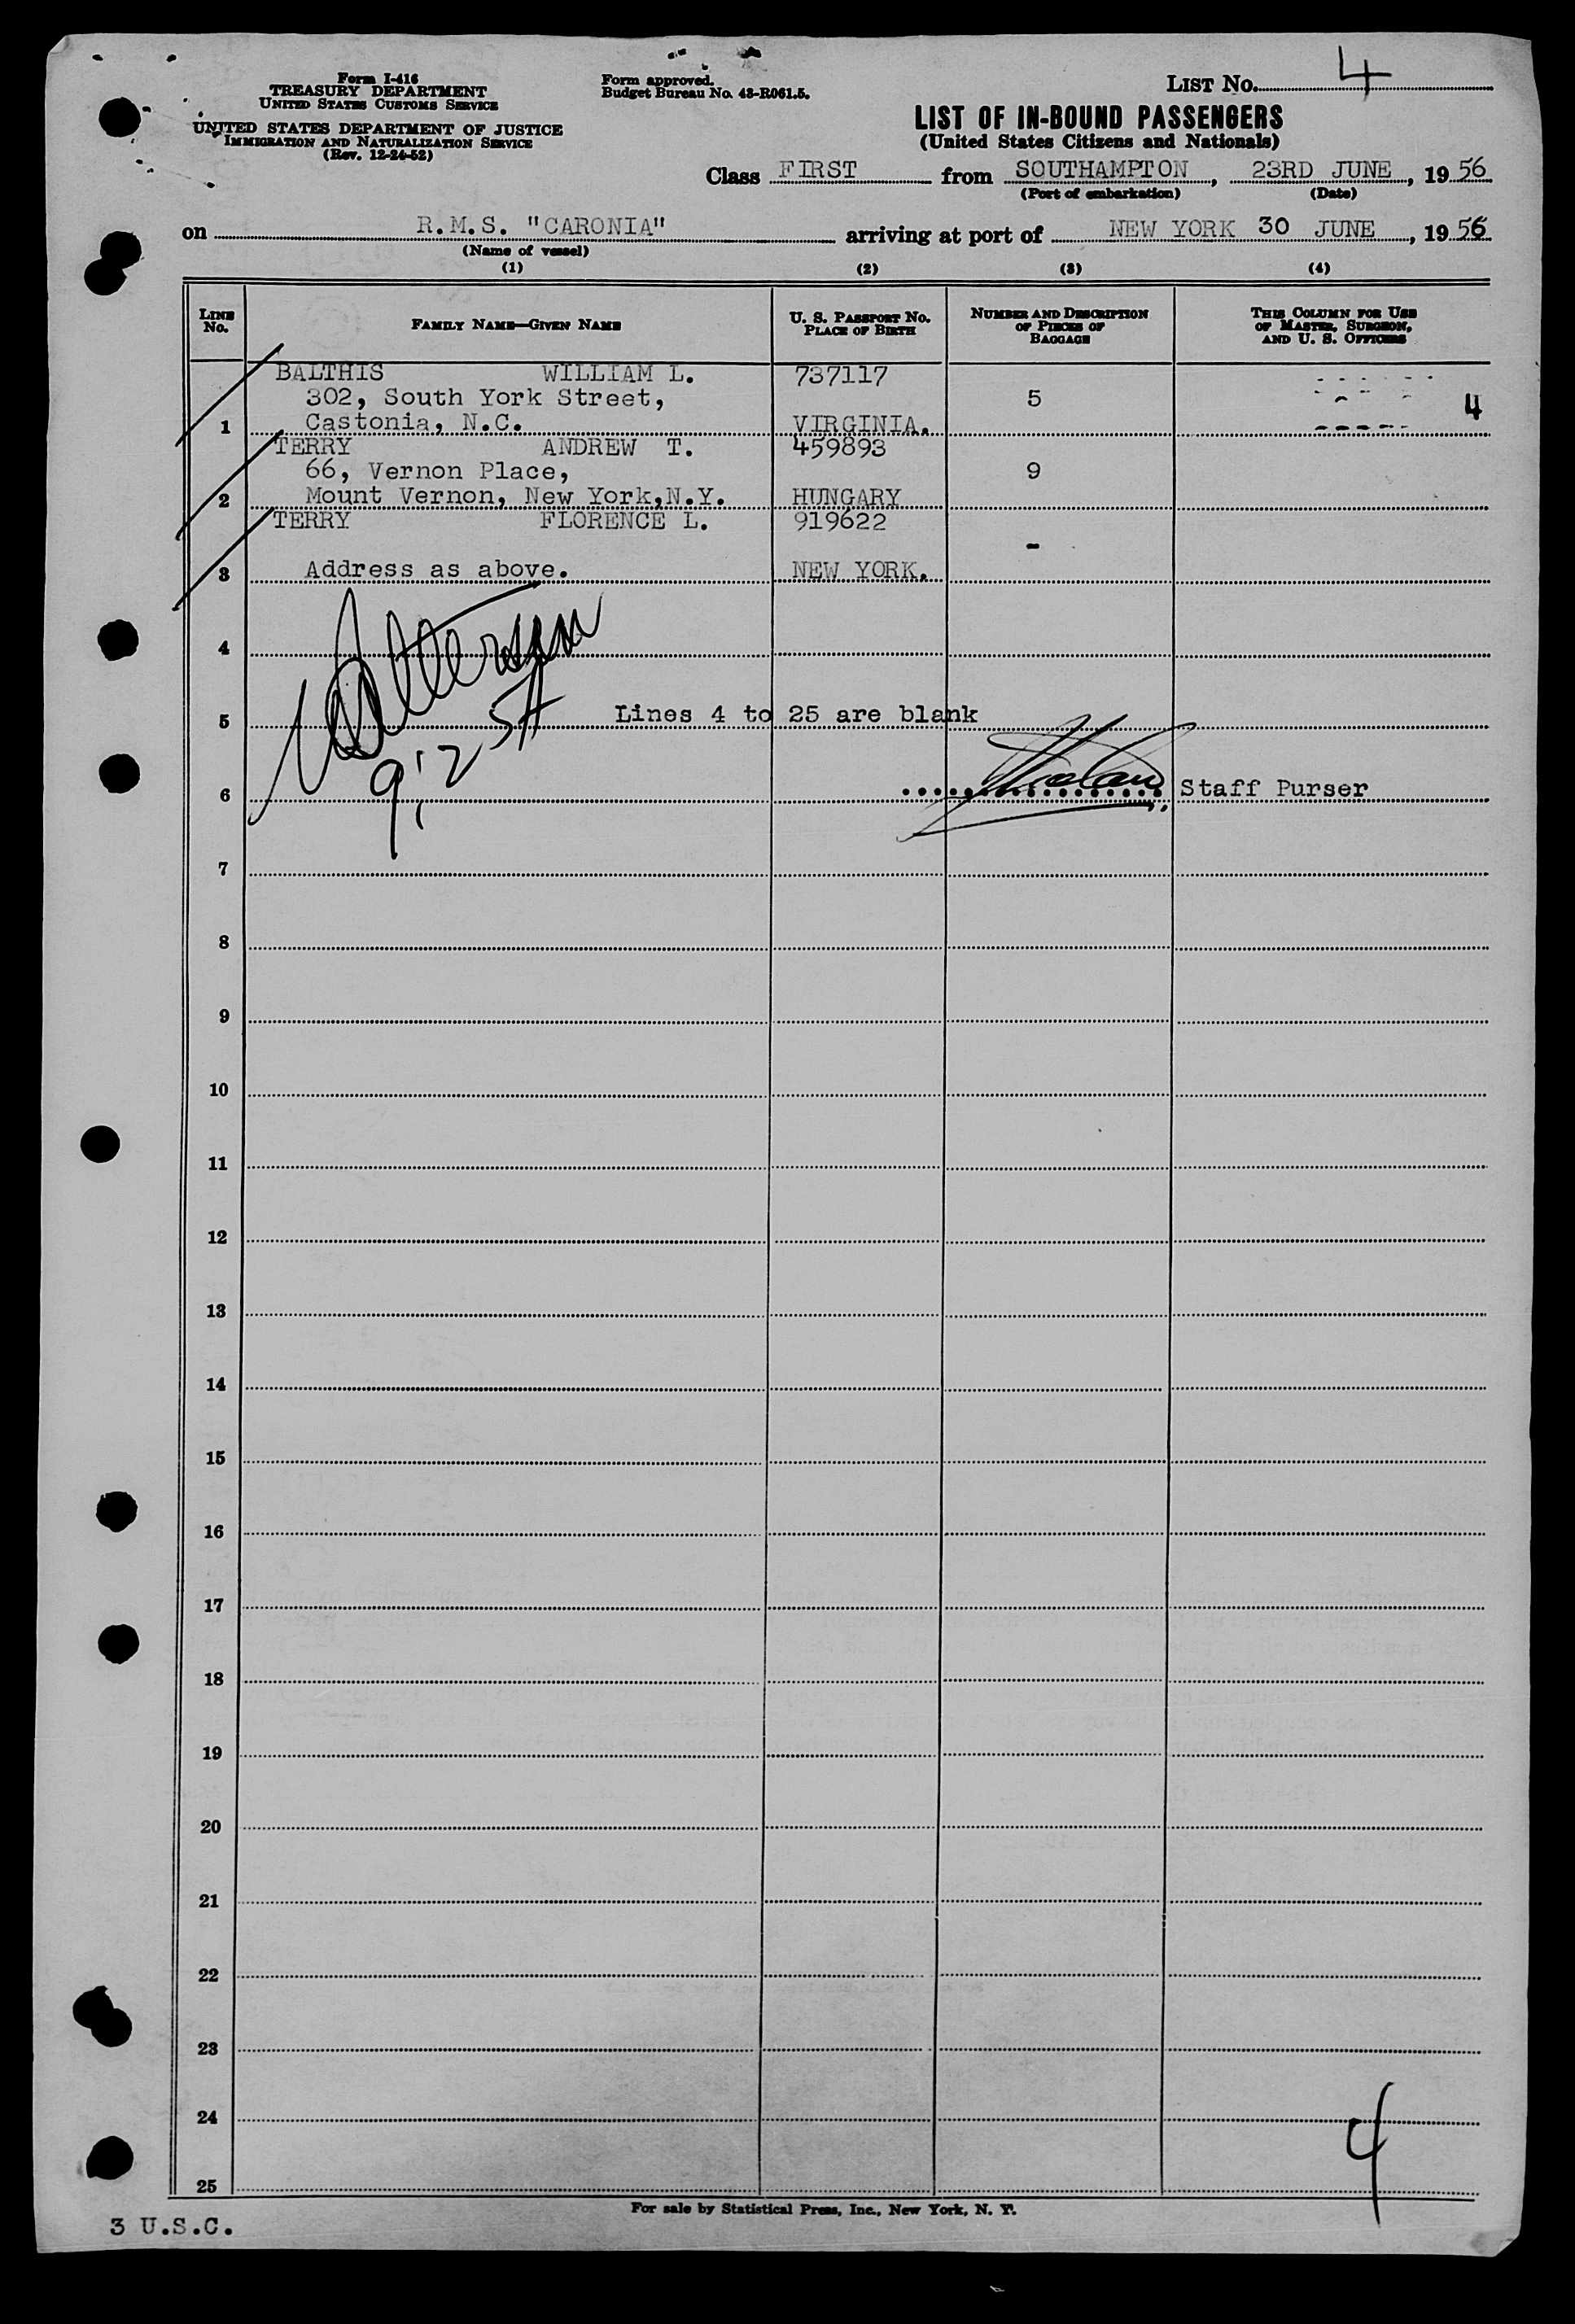 Form I-416
TREASURY DEPARTMENT
UNITED STATES CUSTOMS SERVICE
UNITED STATES DEPARTMENT OF JUSTICE
IMMIGRATION AND NATURALIZATION SERVICE
(Rev. 12-24-52)
Form approved.
Budget Bureau No. 43-R061.5.
LIST NO. 4
LIST OF IN-BOUND PASSENGERS
(United States Citizens and Nationals)
Class FIRST from SOUTHAMPTON, 23RD JUNE, 1956
(Port of embarkation) (Date)
on R.M.S. "CARONIA" arriving at port of NEW YORK 30 JUNE, 1956
(Name of vessel)
(1) (2) (3) (4)
LINE NO. FAMILY NAME—GIVEN NAME U. S. PASSPORT NO. PLACE OF BIRTH NUMBER AND DESCRIPTION OF PIECES OF BAGGAGE THIS COLUMN FOR USE OF MASTER, SURGEON, AND U. S. OFFICERS
BALTHIS WILLIAM L. 737117
302, South York Street, 5 4
1 Castonia, N.C. VIRGINIA.
TERRY ANDREW T. 459893
66, Vernon Place, 9
2 Mount Vernon, New York,N.Y. HUNGARY
TERRY FLORENCE L. 919622
-
3 Address as above. NEW YORK.
4
5 Lines 4 to 25 are blank
6 Staff Purser
7
8
9
10
11
12
13
14
15
16
17
18
19
20
21
22
23
24 4
25
For sale by Statistical Press, Inc., New York, N. Y.
3 U.S.C.